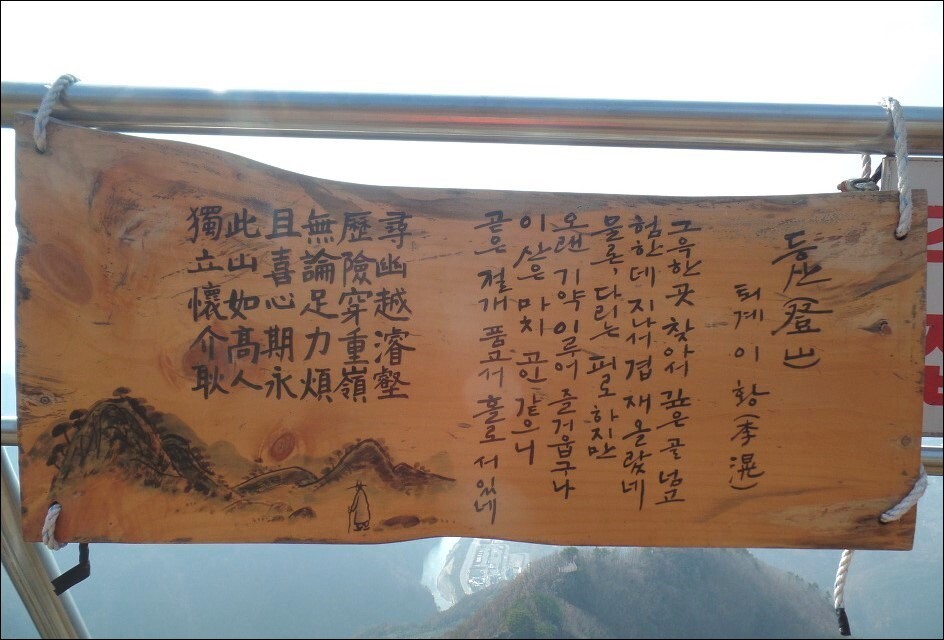 등산(登山)
퇴계 이황(李滉)
그윽한 곳 찾아서 깊은 골 넘고
험한데 지나서 겹재 올랐네
물론, 다리는 피로하지만
오랜 기약 이루어 즐거웁구나
이 산은 마치 고인 같으니
곧은 절개 품고서 홀로 서 있네
尋幽越濬壑
歷險穿重嶺
無論足力煩
且喜心期永
此山如高人
獨立懷介耿